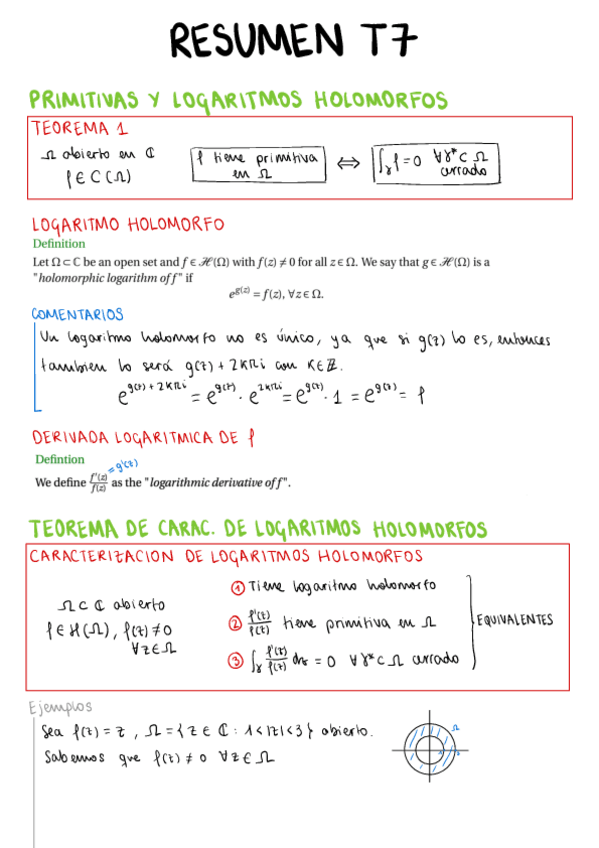 RESUMEN T7
PRIMITIVAS Y LOGARITMOS HOLOMORFOS
TEOREMA 1
Ω abierto en ℂ
f ∈ C(Ω)
f tiene primitiva
en Ω
⇔
∫γ f = 0 ∀γ* ⊂ Ω
cerrado
LOGARITMO HOLOMORFO
Definition
Let Ω ⊂ ℂ be an open set and f ∈ ℋ(Ω) with f(z) ≠ 0 for all z ∈ Ω. We say that g ∈ ℋ(Ω) is a
"holomorphic logarithm of f" if
e^{g(z)} = f(z), ∀z ∈ Ω.
COMENTARIOS
Un logaritmo holomorfo no es único, ya que si g(z) lo es, entonces
tambien lo será g(z) + 2kπi con k ∈ ℤ.
e^{g(z)+2kπi} = e^{g(z)} · e^{2kπi} = e^{g(z)} · 1 = e^{g(z)} = f
DERIVADA LOGARITMICA DE f
Defintion
We define f'(z)/f(z) = g'(z) as the "logarithmic derivative of f".
TEOREMA DE CARAC. DE LOGARITMOS HOLOMORFOS
CARACTERIZACION DE LOGARITMOS HOLOMORFOS
Ω ⊂ ℂ abierto
f ∈ ℋ(Ω), f(z) ≠ 0
∀z ∈ Ω
① Tiene logaritmo holomorfo
② f'(z)/f(z) tiene primitiva en Ω
③ ∫γ f'(z)/f(z) dz = 0 ∀γ* ⊂ Ω cerrado
EQUIVALENTES
Ejemplos
Sea f(z) = z, Ω = {z ∈ ℂ : 1 < |z| < 3} abierto.
Sabemos que f(z) ≠ 0 ∀z ∈ Ω
Ω